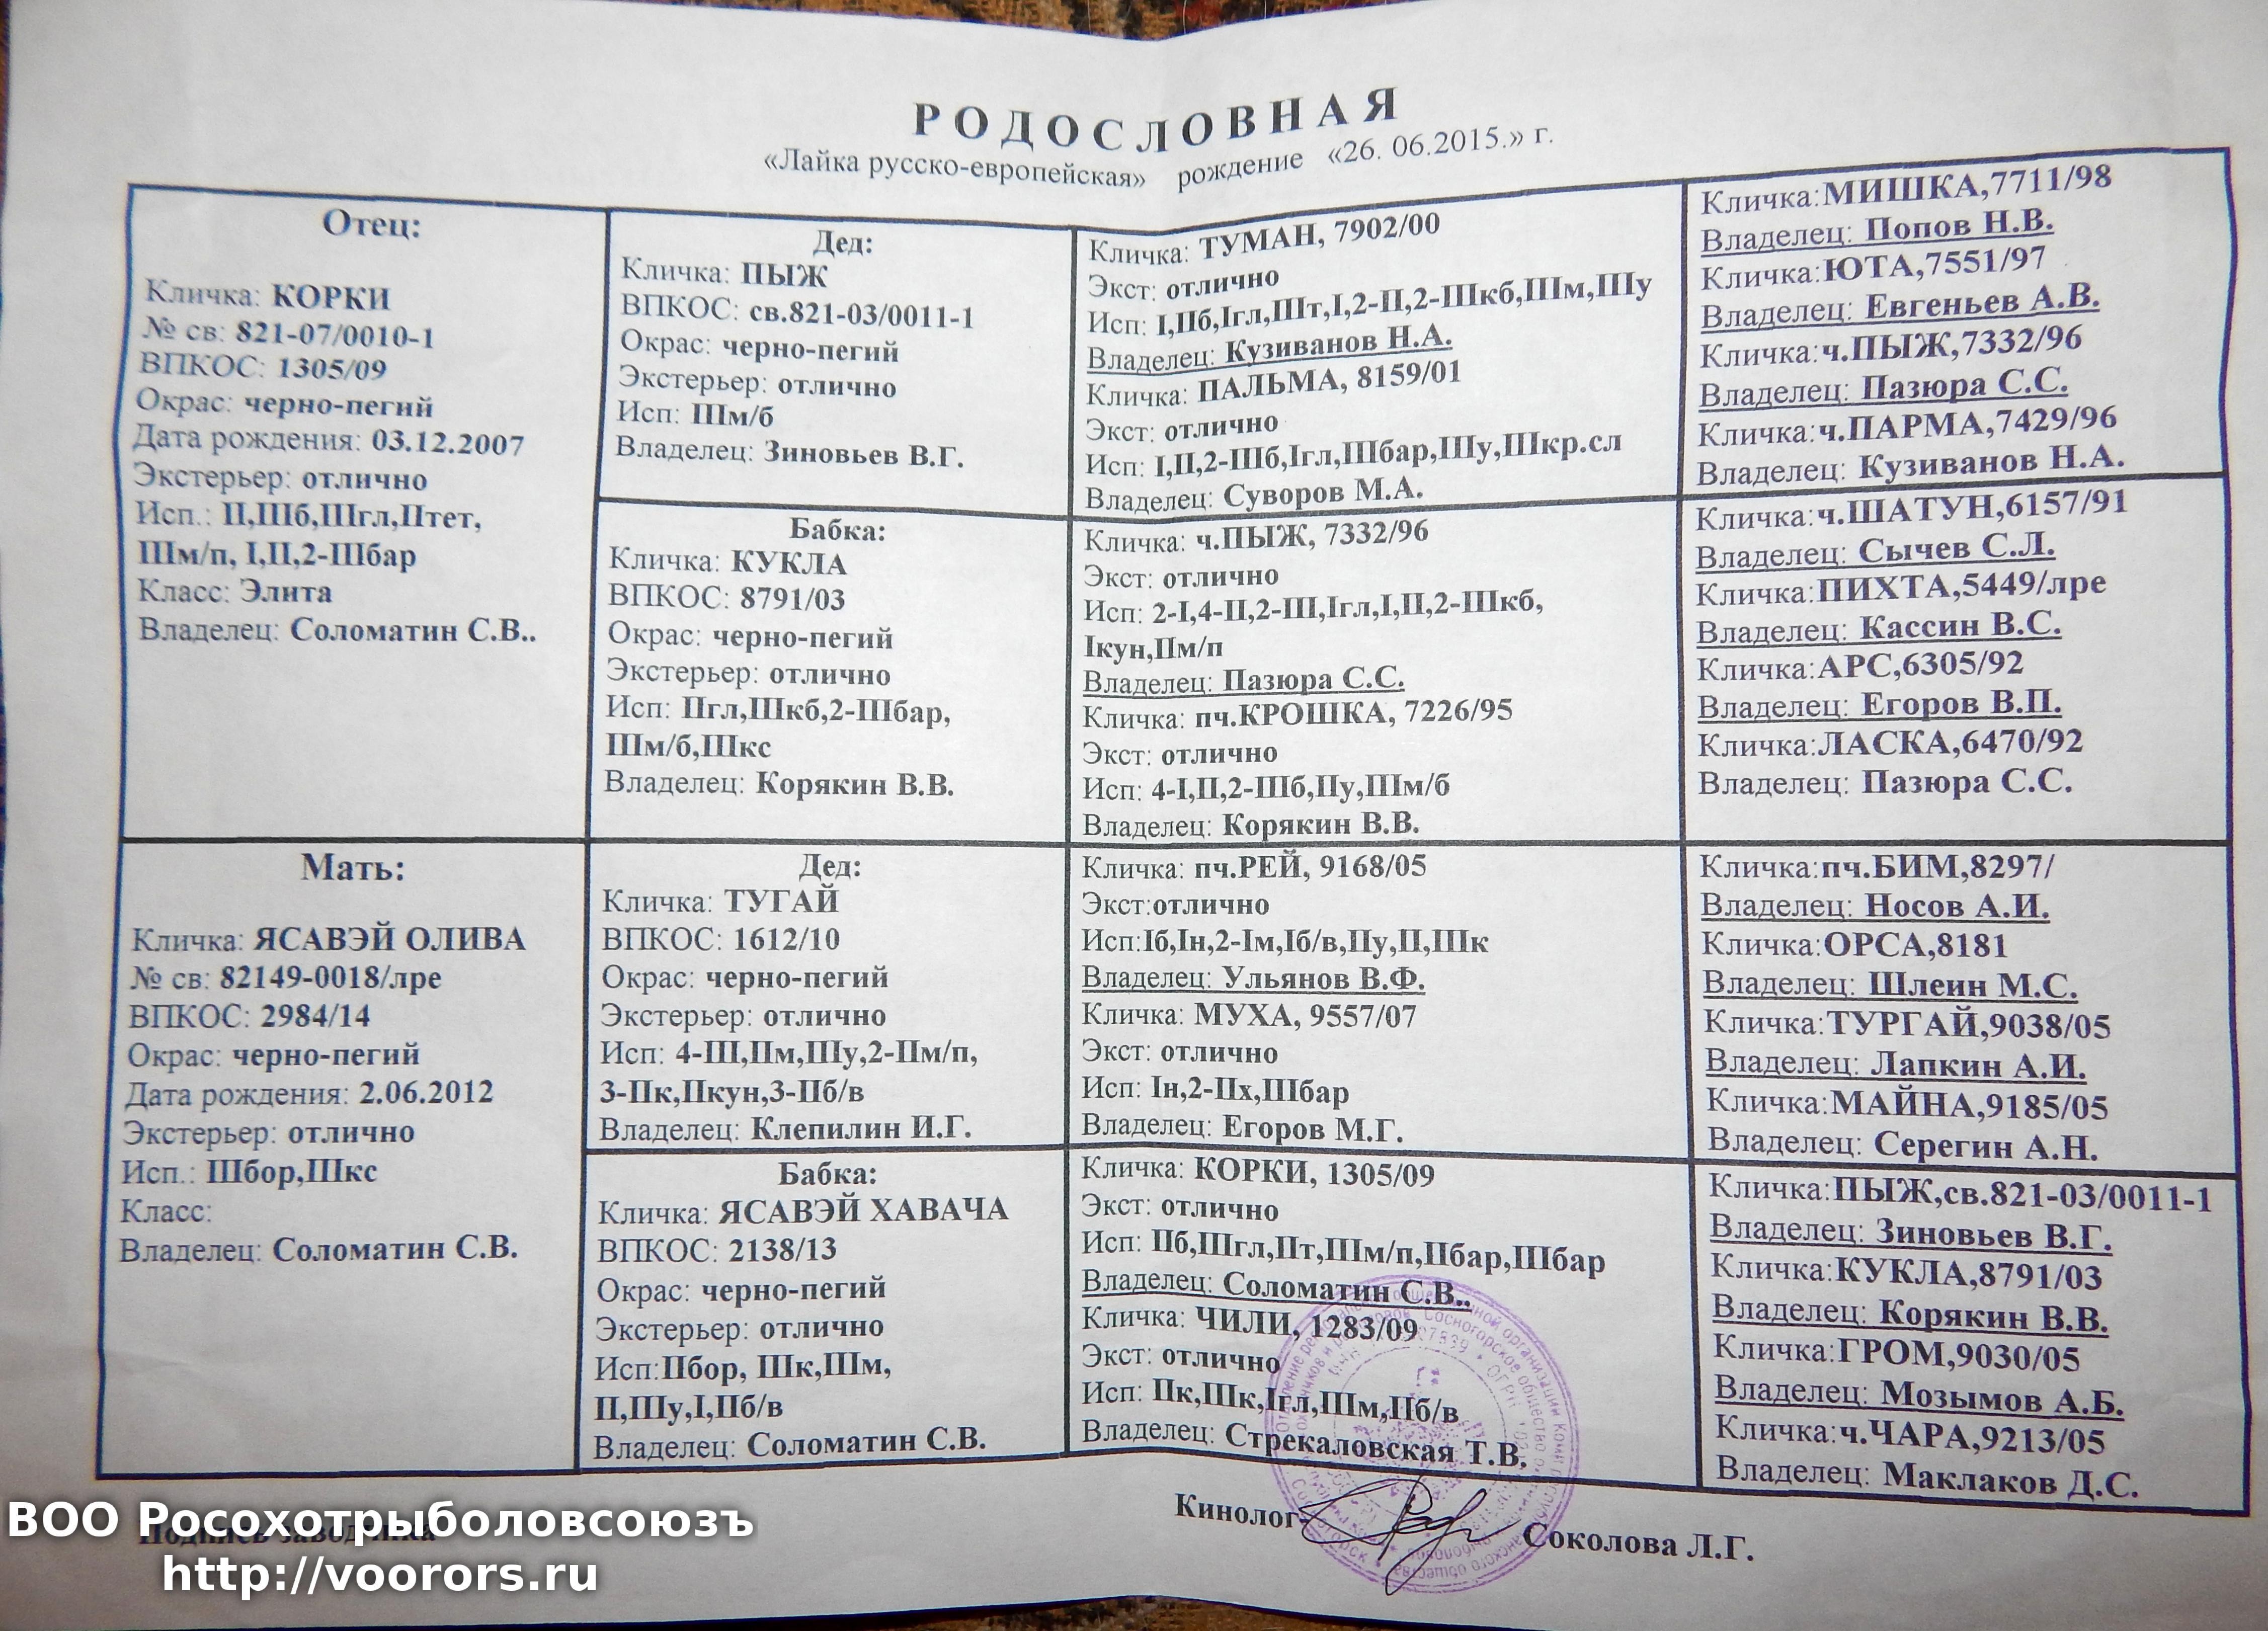 РОДОСЛОВНАЯ
«Лайка русско-европейская» рождение «26. 06.2015.» г.
Отец:
Кличка: КОРКИ
№ св: 821-07/0010-1
ВПКОС: 1305/09
Окрас: черно-пегий
Дата рождения: 03.12.2007
Экстерьер: отлично
Исп.: II,IIIб,IIIгл,IIтет,
IIIм/п, I,II,2-IIIбар
Класс: Элита
Владелец: Соломатин С.В..
Дед:
Кличка: ПЫЖ
ВПКОС: св.821-03/0011-1
Окрас: черно-пегий
Экстерьер: отлично
Исп: IIIм/б
Владелец: Зиновьев В.Г.
Бабка:
Кличка: КУКЛА
ВПКОС: 8791/03
Окрас: черно-пегий
Экстерьер: отлично
Исп: IIгл,IIIкб,2-IIIбар,
IIIм/б,IIIкс
Владелец: Корякин В.В.
Кличка: ТУМАН, 7902/00
Экст: отлично
Исп: I,IIб,Iгл,IIIт,I,2-II,2-IIIкб,IIIм,IIIу
Владелец: Кузиванов Н.А.
Кличка: ПАЛЬМА, 8159/01
Экст: отлично
Исп: I,II,2-IIIб,Iгл,IIIбар,IIIу,IIIкр.сл
Владелец: Суворов М.А.
Кличка: ч.ПЫЖ, 7332/96
Экст: отлично
Исп: 2-I,4-II,2-III,Iгл,I,II,2-IIIкб,
Iкун,IIм/п
Владелец: Пазюра С.С.
Кличка: пч.КРОШКА, 7226/95
Экст: отлично
Исп: 4-I,II,2-IIIб,IIу,IIIм/б
Владелец: Корякин В.В.
Кличка:МИШКА,7711/98
Владелец: Попов Н.В.
Кличка:ЮТА,7551/97
Владелец: Евгеньев А.В.
Кличка:ч.ПЫЖ,7332/96
Владелец: Пазюра С.С.
Кличка:ч.ПАРМА,7429/96
Владелец: Кузиванов Н.А.
Кличка:ч.ШАТУН,6157/91
Владелец: Сычев С.Л.
Кличка:ПИХТА,5449/лре
Владелец: Кассин В.С.
Кличка:АРС,6305/92
Владелец: Егоров В.П.
Кличка:ЛАСКА,6470/92
Владелец: Пазюра С.С.
Мать:
Кличка: ЯСАВЭЙ ОЛИВА
№ св: 82149-0018/лре
ВПКОС: 2984/14
Окрас: черно-пегий
Дата рождения: 2.06.2012
Экстерьер: отлично
Исп.: IIIбор,IIIкс
Класс:
Владелец: Соломатин С.В.
Дед:
Кличка: ТУГАЙ
ВПКОС: 1612/10
Окрас: черно-пегий
Экстерьер: отлично
Исп: 4-III,IIм,IIIу,2-IIм/п,
3-IIк,IIкун,3-IIб/в
Владелец: Клепилин И.Г.
Бабка:
Кличка: ЯСАВЭЙ ХАВАЧА
ВПКОС: 2138/13
Окрас: черно-пегий
Экстерьер: отлично
Исп:IIбор, IIIк,IIIм,
II,IIIу,I,IIб/в
Владелец: Соломатин С.В.
Кличка: пч.РЕЙ, 9168/05
Экст:отлично
Исп:Iб,Iн,2-Iм,Iб/в,IIу,II,IIIк
Владелец: Ульянов В.Ф.
Кличка: МУХА, 9557/07
Экст: отлично
Исп: Iн,2-IIх,IIIбар
Владелец: Егоров М.Г.
Кличка: КОРКИ, 1305/09
Экст: отлично
Исп: IIб,IIIгл,IIт,IIIм/п,IIбар,IIIбар
Владелец: Соломатин С.В..
Кличка: ЧИЛИ, 1283/09
Экст: отлично
Исп: IIк,IIIк,Iгл,IIIм,IIб/в
Владелец: Стрекаловская Т.В.
Кличка:пч.БИМ,8297/
Владелец: Носов А.И.
Кличка:ОРСА,8181
Владелец: Шлеин М.С.
Кличка:ТУРГАЙ,9038/05
Владелец: Лапкин А.И.
Кличка:МАЙНА,9185/05
Владелец: Серегин А.Н.
Кличка:ПЫЖ,св.821-03/0011-1
Владелец: Зиновьев В.Г.
Кличка:КУКЛА,8791/03
Владелец: Корякин В.В.
Кличка:ГРОМ,9030/05
Владелец: Мозымов А.Б.
Кличка:ч.ЧАРА,9213/05
Владелец: Маклаков Д.С.
Подпись заводчика
Кинолог Соколова Л.Г.
ВОО Росохотрыболовсоюзъ
http://voorors.ru